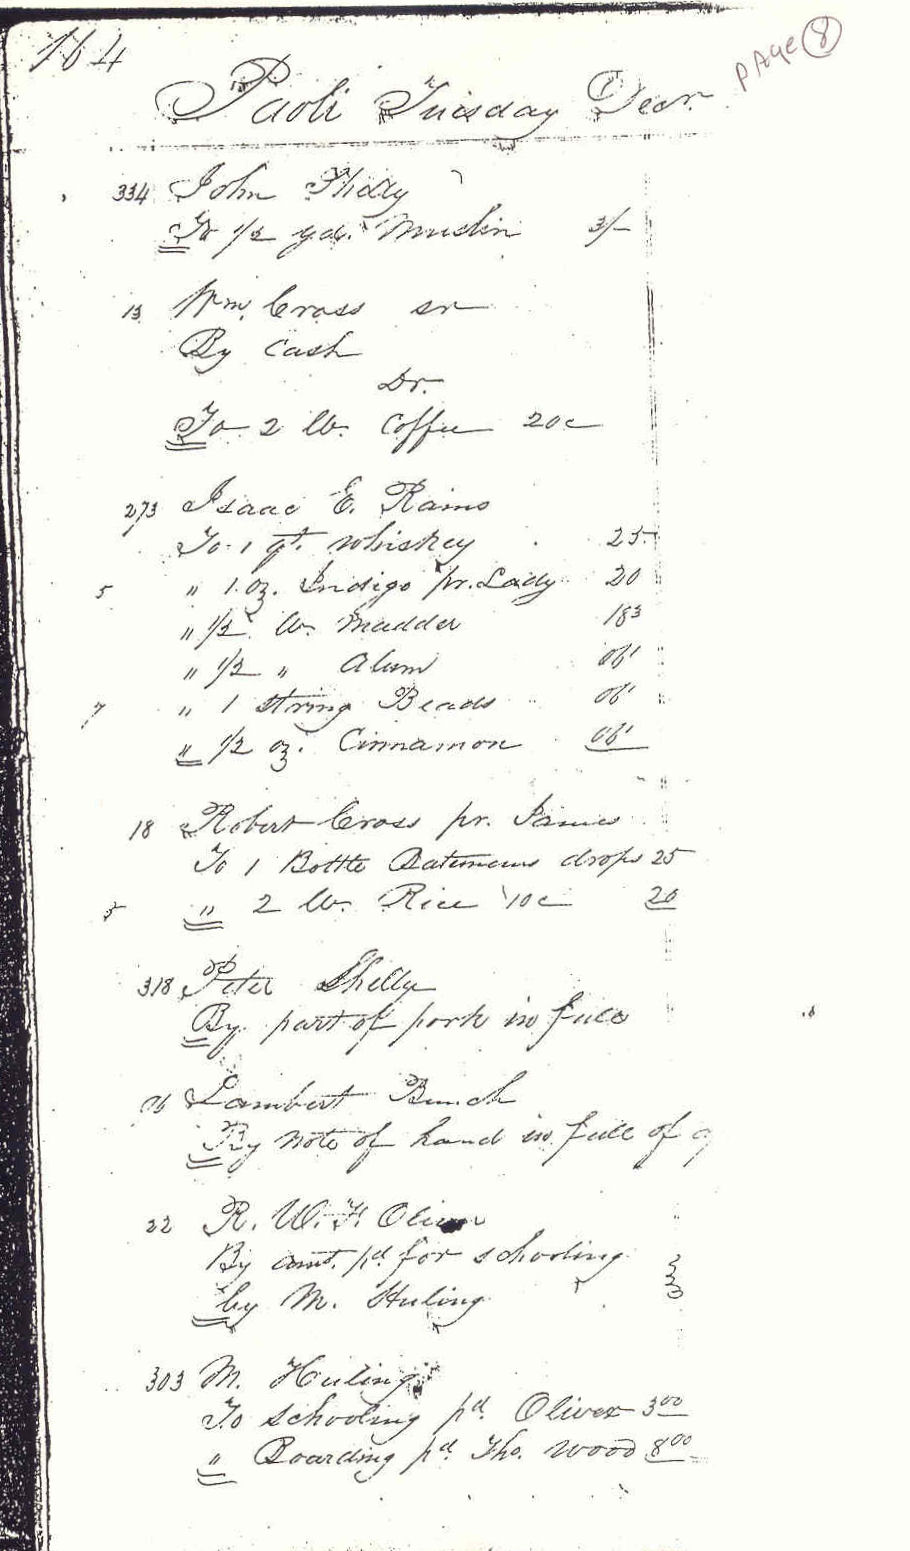 164
PAge 8
Paoli Tuesday Decr.
334 John
To 1/2 yd. Muslin 3/-
13 Wm. Cross sr
By Cash
Dr.
To 2 lb. Coffee 20c
273 Isaac E. Rains
To 1 qt. Whiskey 25
5 " 1 oz. Indigo pr. Lady 20
" 1/2 lb. Madder 18 3
" 1/2 " Alum 06 1
7 " 1 string Beads 06 1
" 1/2 oz. Cinnamon 06 1
18 Robert Cross pr. James
To 1 Bottle Batemans drops 25
5 " 2 lb. Rice 10c 20
318 Peter Shelly
By part of pork in full
Lambert Bunch
By note of hand in full of
22 R. W. F. Oliver
By amt. pd. for schooling
by M. Huling
303 M. Huling
To schooling pd. Oliver 3 00
" Boarding pd. Tho. Wood 8 00